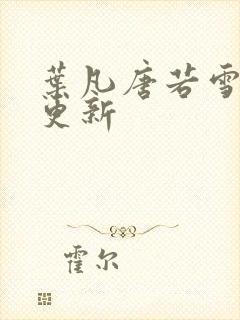 葉凡唐若雪
更新
霍尔